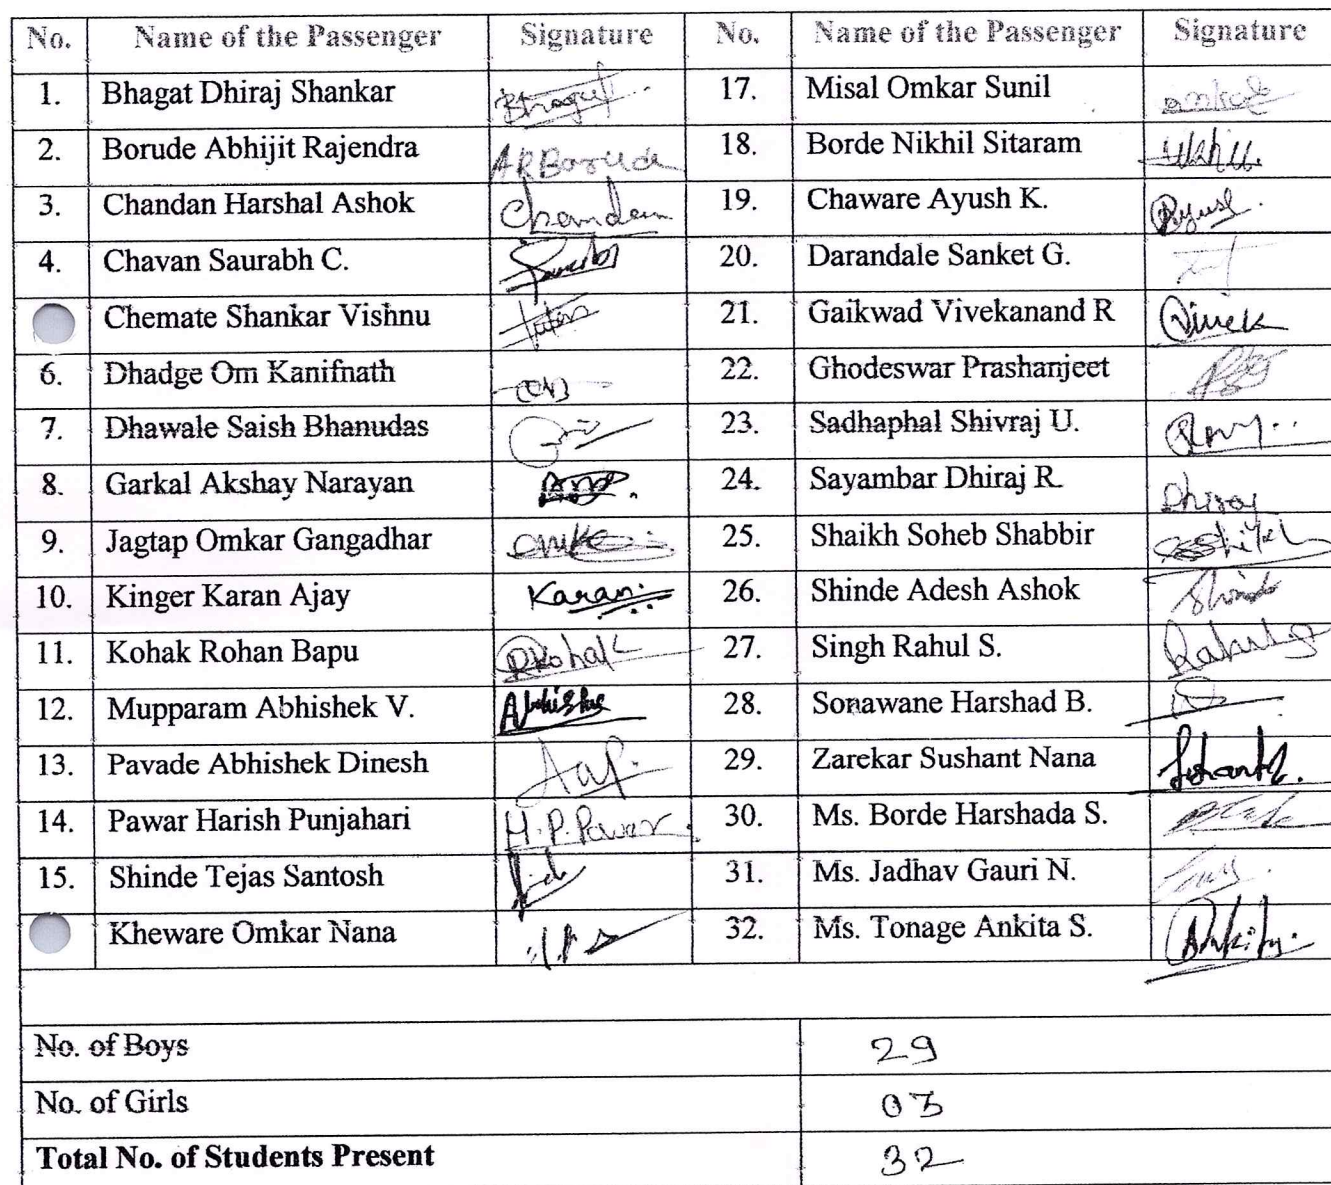 No. Name of the Passenger Signature No. Name of the Passenger Signature
1. Bhagat Dhiraj Shankar Bhagat 17. Misal Omkar Sunil Omkar
2. Borude Abhijit Rajendra ARBorude 18. Borde Nikhil Sitaram
3. Chandan Harshal Ashok Chandan 19. Chaware Ayush K. Ayush.
4. Chavan Saurabh C. 20. Darandale Sanket G.
Chemate Shankar Vishnu 21. Gaikwad Vivekanand R Vivek
6. Dhadge Om Kanifnath 22. Ghodeswar Prashanjeet
7. Dhawale Saish Bhanudas 23. Sadhaphal Shivraj U.
8. Garkal Akshay Narayan 24. Sayambar Dhiraj R. Dhiraj
9. Jagtap Omkar Gangadhar 25. Shaikh Soheb Shabbir
10. Kinger Karan Ajay Karan 26. Shinde Adesh Ashok Shinde
11. Kohak Rohan Bapu RKohak 27. Singh Rahul S.
12. Mupparam Abhishek V. 28. Sonawane Harshad B.
13. Pavade Abhishek Dinesh 29. Zarekar Sushant Nana
14. Pawar Harish Punjahari H.P.Pawar. 30. Ms. Borde Harshada S.
15. Shinde Tejas Santosh 31. Ms. Jadhav Gauri N.
Kheware Omkar Nana 32. Ms. Tonage Ankita S. Ankita
No. of Boys 29
No. of Girls 03
Total No. of Students Present 32